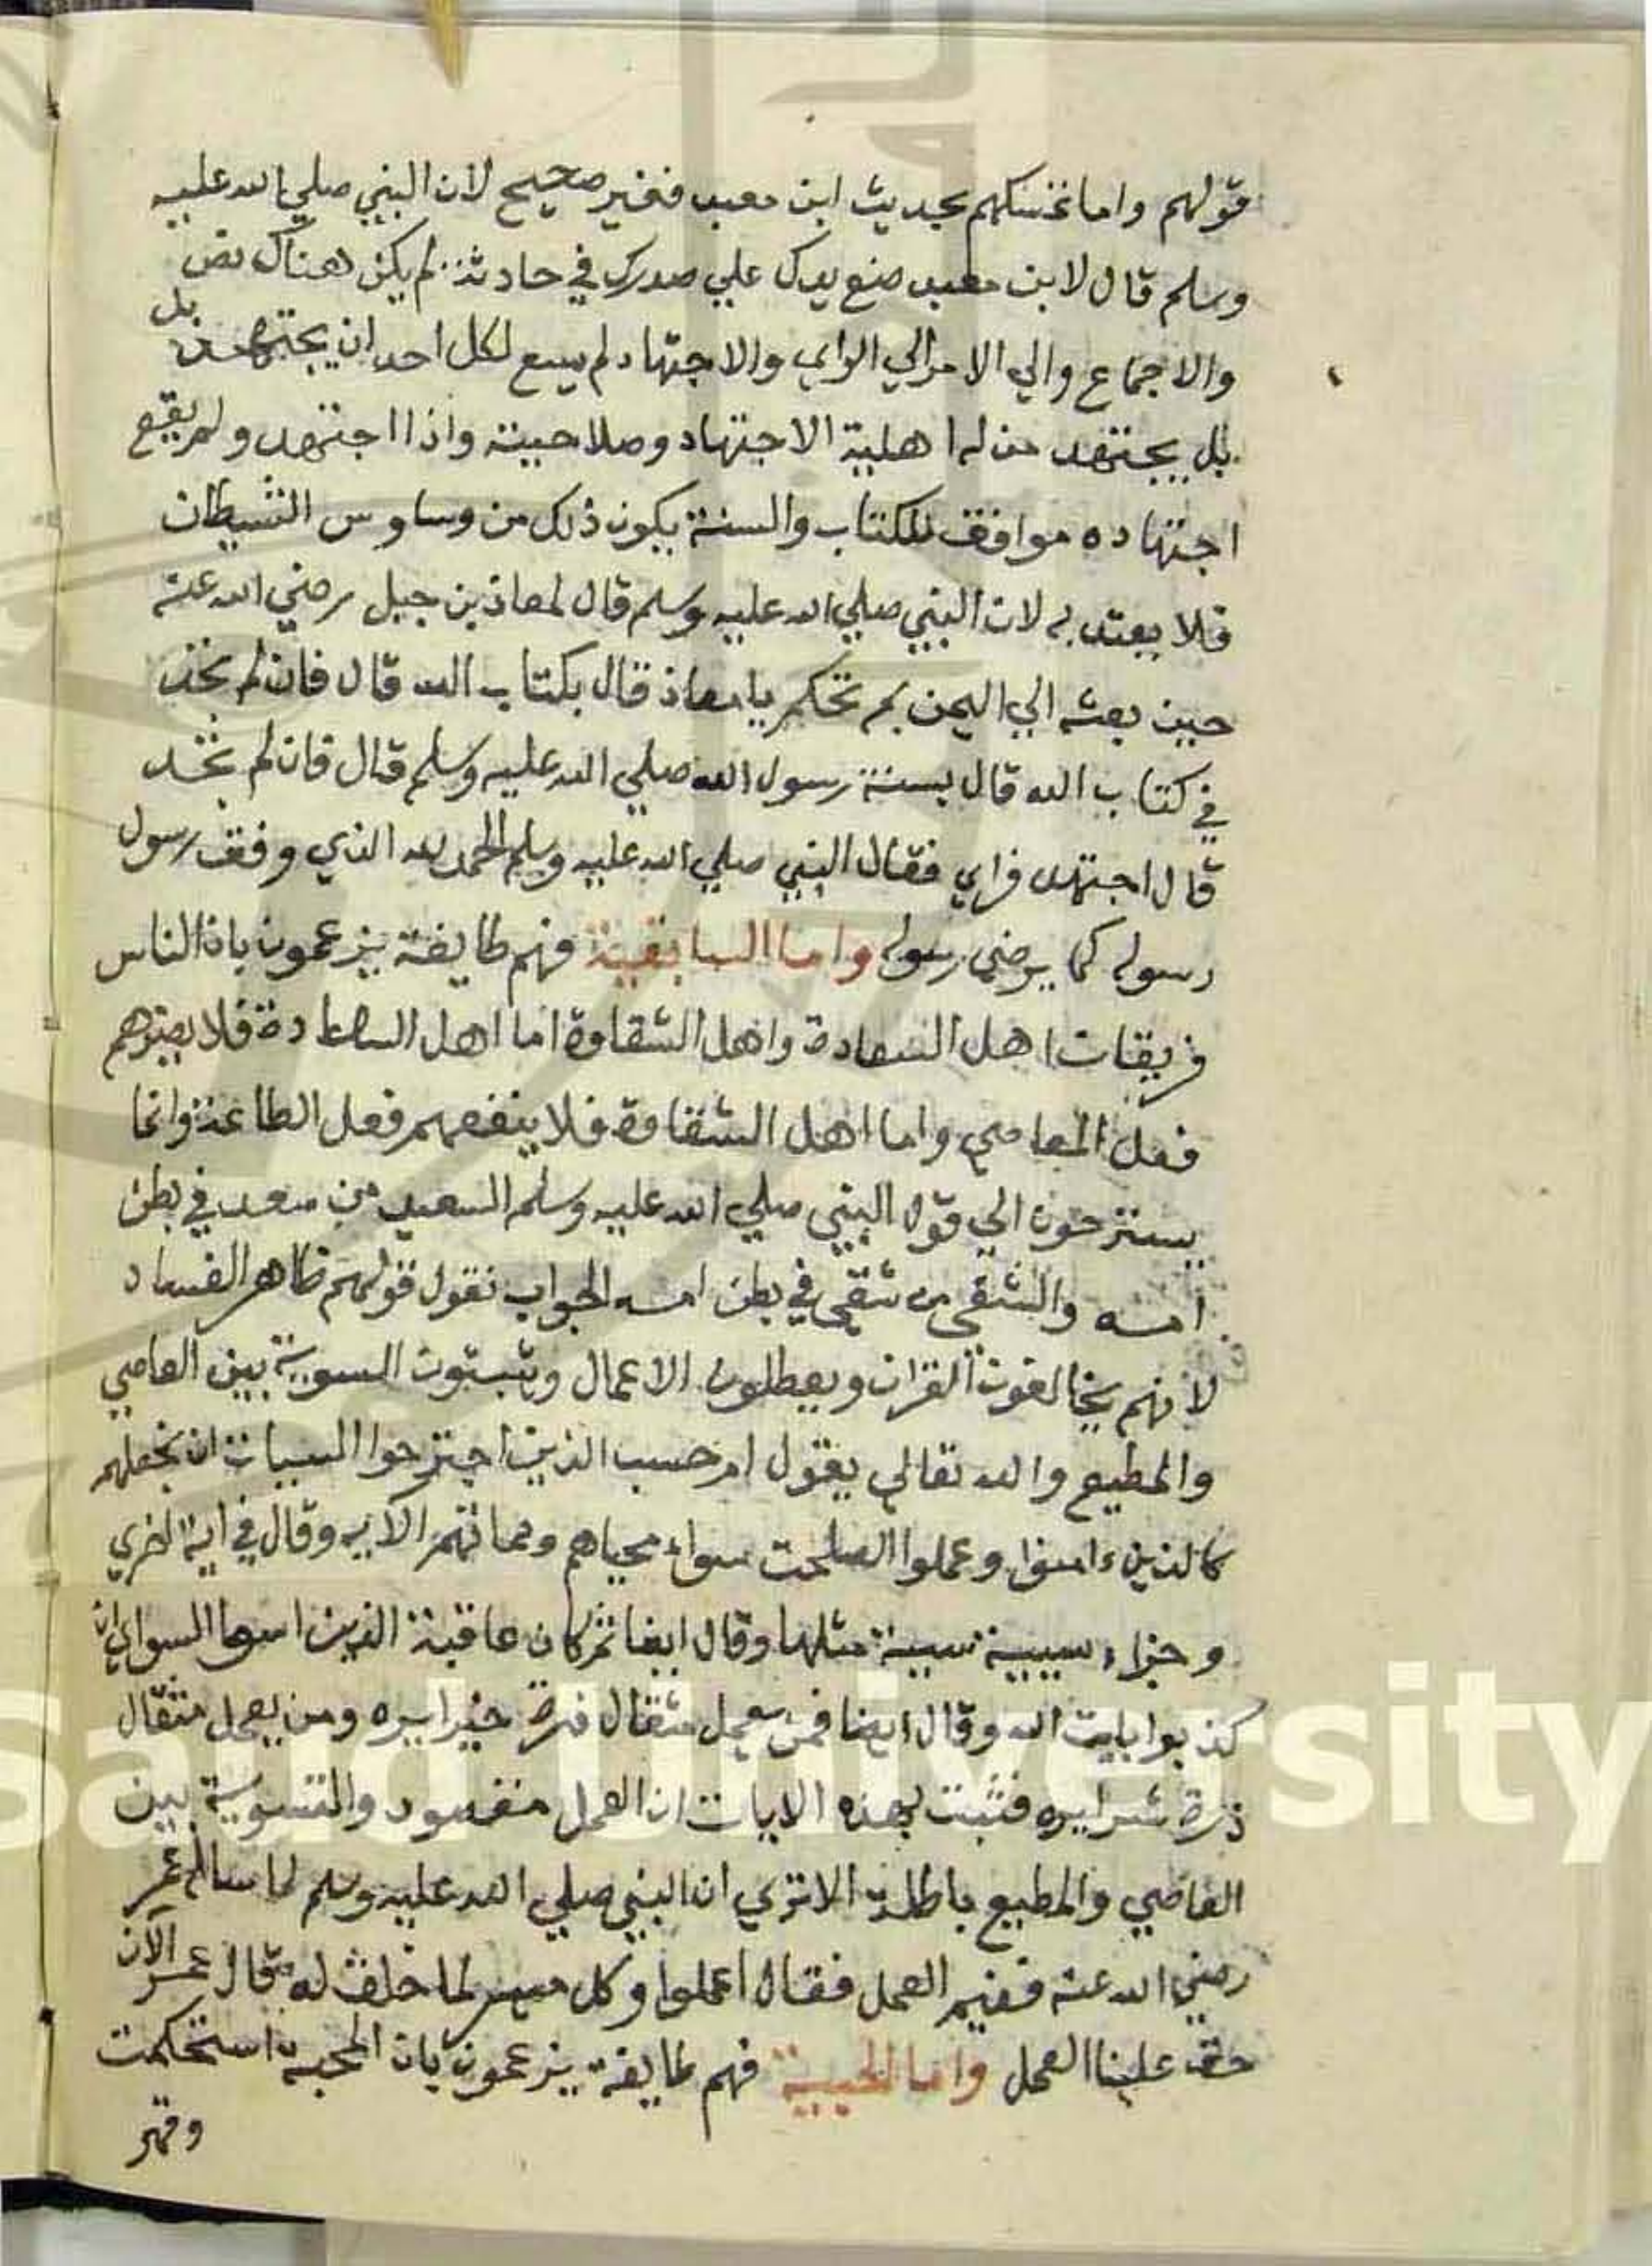 قولهم واما تمسكهم بحديث ابن معبد فغير صحيح لان النبي صلي الله عليه
وسلم قال لابن معبد ضع يدك علي صدرك في حادثة لم يكن هناك نص
والاجماع والي الامر الي الراي والاجتهاد لم يسع لكل احد ان يجتهد بل
بل يجتهد من له اهلية الاجتهاد وصلاحيته واذا اجتهد ولم يقع
اجتهاده موافق للكتاب والسنة يكون ذلك من وساوس الشيطان
فلا يعتد به لان النبي صلي الله عليه وسلم قال لمعاذ بن جبل رضي الله عنه
حين بعثه الي اليمن بم تحكم يا معاذ قال بكتاب الله قال فان لم تجد
في كتاب الله قال بسنة رسول الله صلي الله عليه وسلم قال فان لم تجد
قال اجتهد فراي فقال النبي صلي الله عليه وسلم الحمد لله الذي وفق رسول
رسوله كما يرضي رسوله واما السابقية فهم طايفة يزعمون بان الناس
فريقان اهل السعادة واهل الشقاوة اما اهل السعادة فلا يضرهم
فعل المعاصي واما اهل الشقاوة فلا ينفعهم فعل الطاعة وانما
يستزحون الي قول النبي صلي الله عليه وسلم السعيد من سعد في بطن
امه والشقي من شقي في بطن امه الجواب نقول قولهم ظاهر الفساد
لانهم يخالفون القران ويعطلون الاعمال ويثبتون السوية بين العاصي
والمطيع والله تعالي يقول ام حسب الذين اجترحوا السيات ان نجعلهم
كالذين ءامنوا وعملوا الصلحت سواء محياهم ومماتهم الايه وقال في اية اخري
وجزاء سيية سيية مثلها وقال ايضا ثم كان عاقبة الذين اسوا السواي ان
كذبوا بايت الله وقال ايضا فمن يعمل مثقال ذرة خيرا يره ومن يعمل مثقال
ذرة شرا يره فثبت بهذه الايات ان العمل مقصود والتسوية بين
العاصي والمطيع باطلة الا تري ان النبي صلي الله عليه وسلم لما ساله عمر
رضي الله عنه ففيم العمل فقال اعملوا وكل ميسر لما خلق له قال عمر الآن
حق علينا العمل واما الحبية فهم طايفة يزعمون بان المحبة استحكمت
وقهر